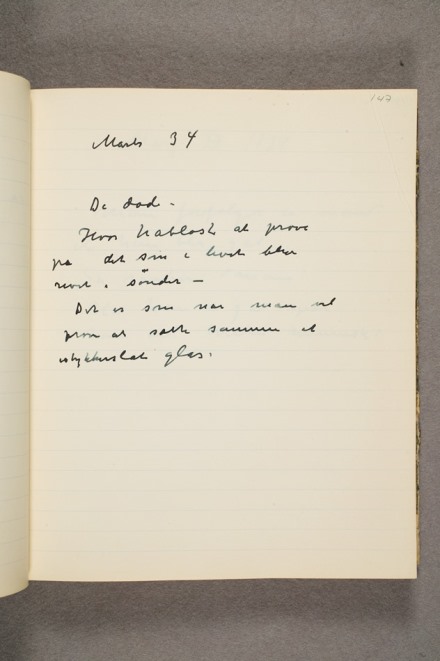 147
Marts 34
De død -
Hvor håbløst at prøve
på det som i livet blev
revet i sönder -
Det er som når man vil
prøve at sætte sammen et
istykkerslået glas.